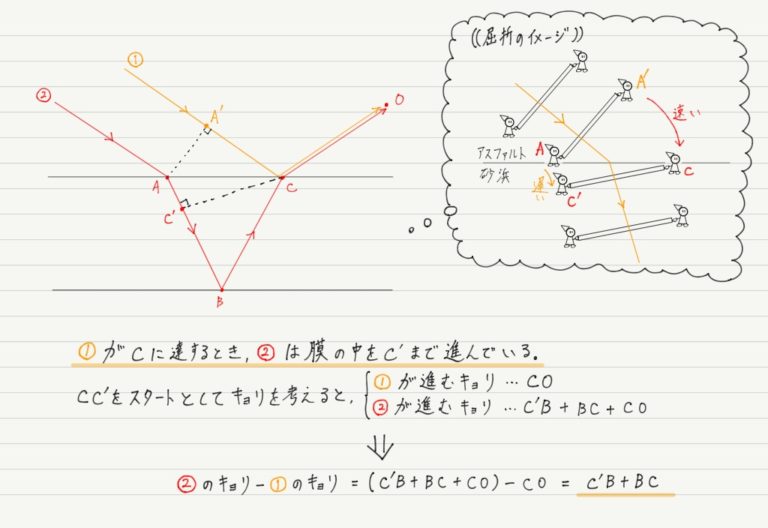 ((屈折のイメージ))
①
②
A'
O
A
C
C'
B
A'
速い
A
アスファルト
砂浜
遅い
C'
C
①がCに達するとき,②は膜の中をC'まで進んでいる.
CC'をスタートとしてキョリを考えると,
①が進むキョリ…CO
②が進むキョリ…C'B+BC+CO
⇓
②のキョリ-①のキョリ=(C'B+BC+CO)-CO=C'B+BC